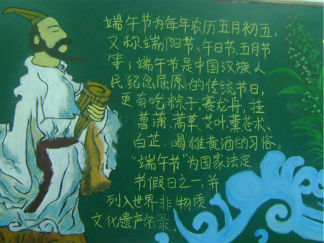 端午节为每年农历五月初五,
又称端阳节、午日节、五月节
等;端午节是中国汉族人
民纪念屈原的传统节日,
更有吃粽子,赛龙舟,挂
菖蒲、蒿草、艾叶,薰苍术、
白芷,喝雄黄酒的习俗。
“端午节”为国家法定
节假日之一,并
列入世界非物质
文化遗产名录.